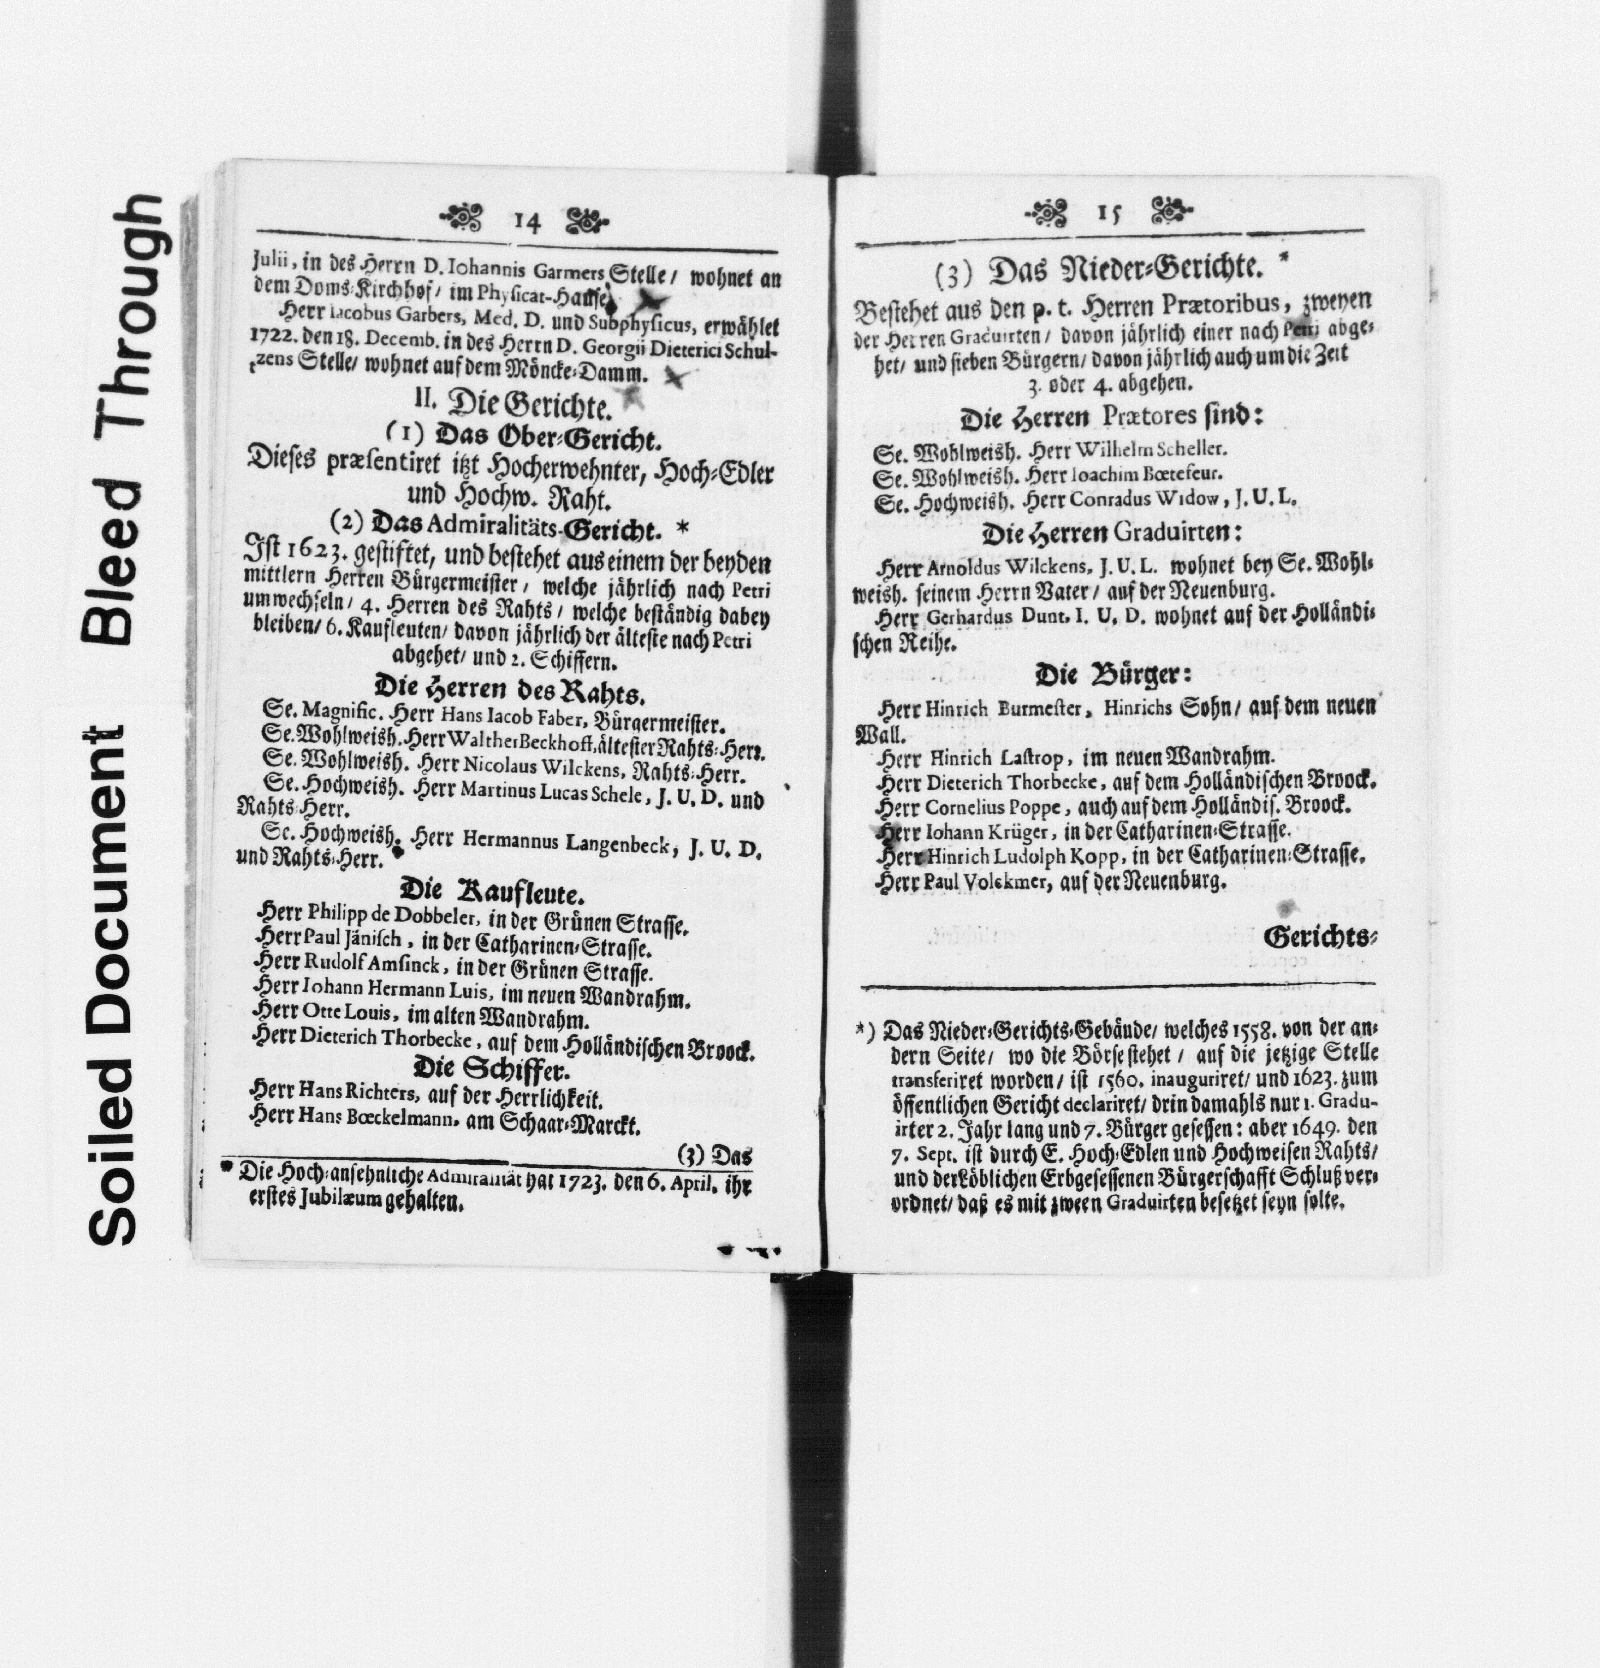 Soiled Document Bleed Through
14
Julii, in des Herrn D. Iohannis Garmers Stelle/ wohnet an
dem Doms-Kirchhof/ im Physicat-Hause.
Herr Iacobus Garbers, Med. D. und Subphysicus, erwählet
1722. den 18. Decemb. in des Herrn D. Georgii Dieterici Schul-
tzens Stelle/ wohnet auf dem Möncke-Damm.
II. Die Gerichte.
(1) Das Ober-Gericht.
Dieses præsentiret itzt Hocherwehnter, Hoch-Edler
und Hochw. Raht.
(2) Das Admiralitäts-Gericht. *
Ist 1623. gestiftet, und bestehet aus einem der beyden
mittlern Herren Bürgermeister/ welche jährlich nach Petri
umwechseln/ 4. Herren des Rahts/ welche beständig dabey
bleiben/ 6. Kaufleuten/ davon jährlich der älteste nach Petri
abgehet/ und 2. Schiffern.
Die Herren des Rahts.
Se. Magnific. Herr Hans Iacob Faber, Bürgermeister.
Se. Wohlweish. Herr Walther Beckhoff, ältester Rahts-Herr.
Se. Wohlweish. Herr Nicolaus Wilckens, Rahts-Herr.
Se. Hochweish. Herr Martinus Lucas Schele, J. U. D. und
Rahts-Herr.
Se. Hochweish. Herr Hermannus Langenbeck, J. U. D.
und Rahts-Herr.
Die Kaufleute.
Herr Philipp de Dobbeler, in der Grünen Strasse.
Herr Paul Jänisch, in der Catharinen-Strasse.
Herr Rudolf Amsinck, in der Grünen Strasse.
Herr Iohann Hermann Luis, im neuen Wandrahm.
Herr Otte Louis, im alten Wandrahm.
Herr Dieterich Thorbecke, auf dem Holländischen Broock.
Die Schiffer.
Herr Hans Richters, auf der Herrlichkeit.
Herr Hans Bœckelmann, am Schaar-Marckt.
(3) Das
* Die Hoch-ansehnliche Admiralität hat 1723. den 6. April. ihr
erstes Jubilæum gehalten.
15
(3) Das Nieder-Gerichte. *
Bestehet aus den p. t. Herren Prætoribus, zweyen
der Herren Graduirten/ davon jährlich einer nach Petri abge-
het/ und sieben Bürgern/ davon jährlich auch um die Zeit
3. oder 4. abgehen.
Die Herren Prætores sind:
Se. Wohlweish. Herr Wilhelm Scheller.
Se. Wohlweish. Herr Ioachim Bœtefeur.
Se. Hochweish. Herr Conradus Widow, J. U. L.
Die Herren Graduirten:
Herr Arnoldus Wilckens, J. U. L. wohnet bey Se. Wohl-
weish. seinem Herrn Vater/ auf der Neuenburg.
Herr Gerhardus Dunt, I. U. D. wohnet auf der Holländi-
schen Reihe.
Die Bürger:
Herr Hinrich Burmester, Hinrichs Sohn/ auf dem neuen
Wall.
Herr Hinrich Lastrop, im neuen Wandrahm.
Herr Dieterich Thorbecke, auf dem Holländischen Broock.
Herr Cornelius Poppe, auch auf dem Holländis. Broock.
Herr Iohann Krüger, in der Catharinen-Strasse.
Herr Hinrich Ludolph Kopp, in der Catharinen-Strasse.
Herr Paul Volckmer, auf der Neuenburg.
Gerichts-
*) Das Nieder-Gerichts-Gebäude/ welches 1558. von der an-
dern Seite/ wo die Börse stehet/ auf die jetzige Stelle
transferiret worden/ ist 1560. inauguriret/ und 1623. zum
öffentlichen Gericht declariret/ drin damahls nur 1. Gradu-
irter 2. Jahr lang und 7. Bürger gesessen: aber 1649. den
7. Sept. ist durch E. Hoch-Edlen und Hochweisen Rahts/
und der Löblichen Erbgesessenen Bürgerschafft Schluß ver-
ordnet/ daß es mit zween Graduirten besetzet seyn solte.